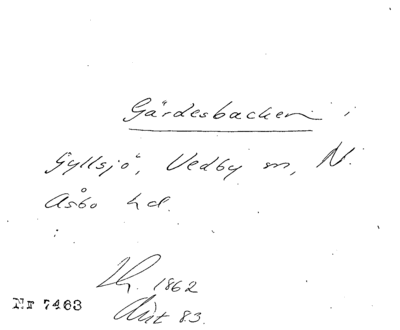 Gärdesbacken i
Gyllsjö, Vedby sn, N.
Åsbo hd.
1862
83.
Nr 7463